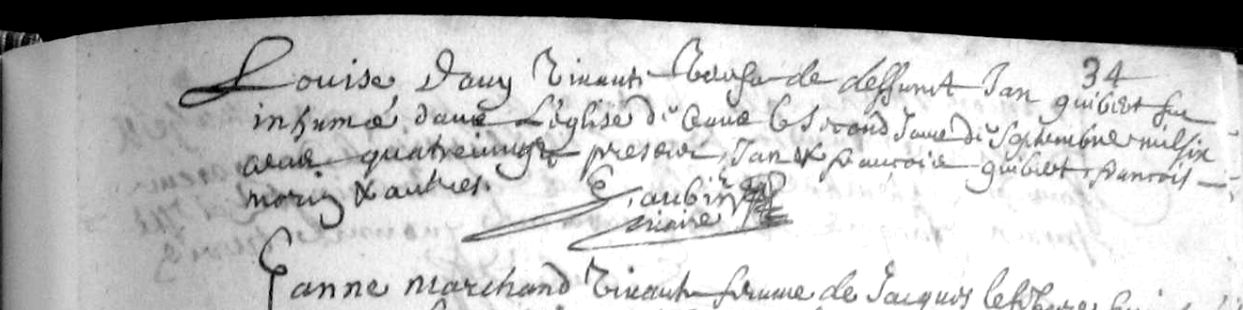 34
Louise Davy vivant veufve de deffunct Jan guibert fut
inhumé dans L'église de le second Jour de Septembre mil six
cens quatrevingts presens, Jan & françois guibert, françois
morin & autres.
G. aubin
vicaire
Janne marchand vivant femme de Jacques lefebvre